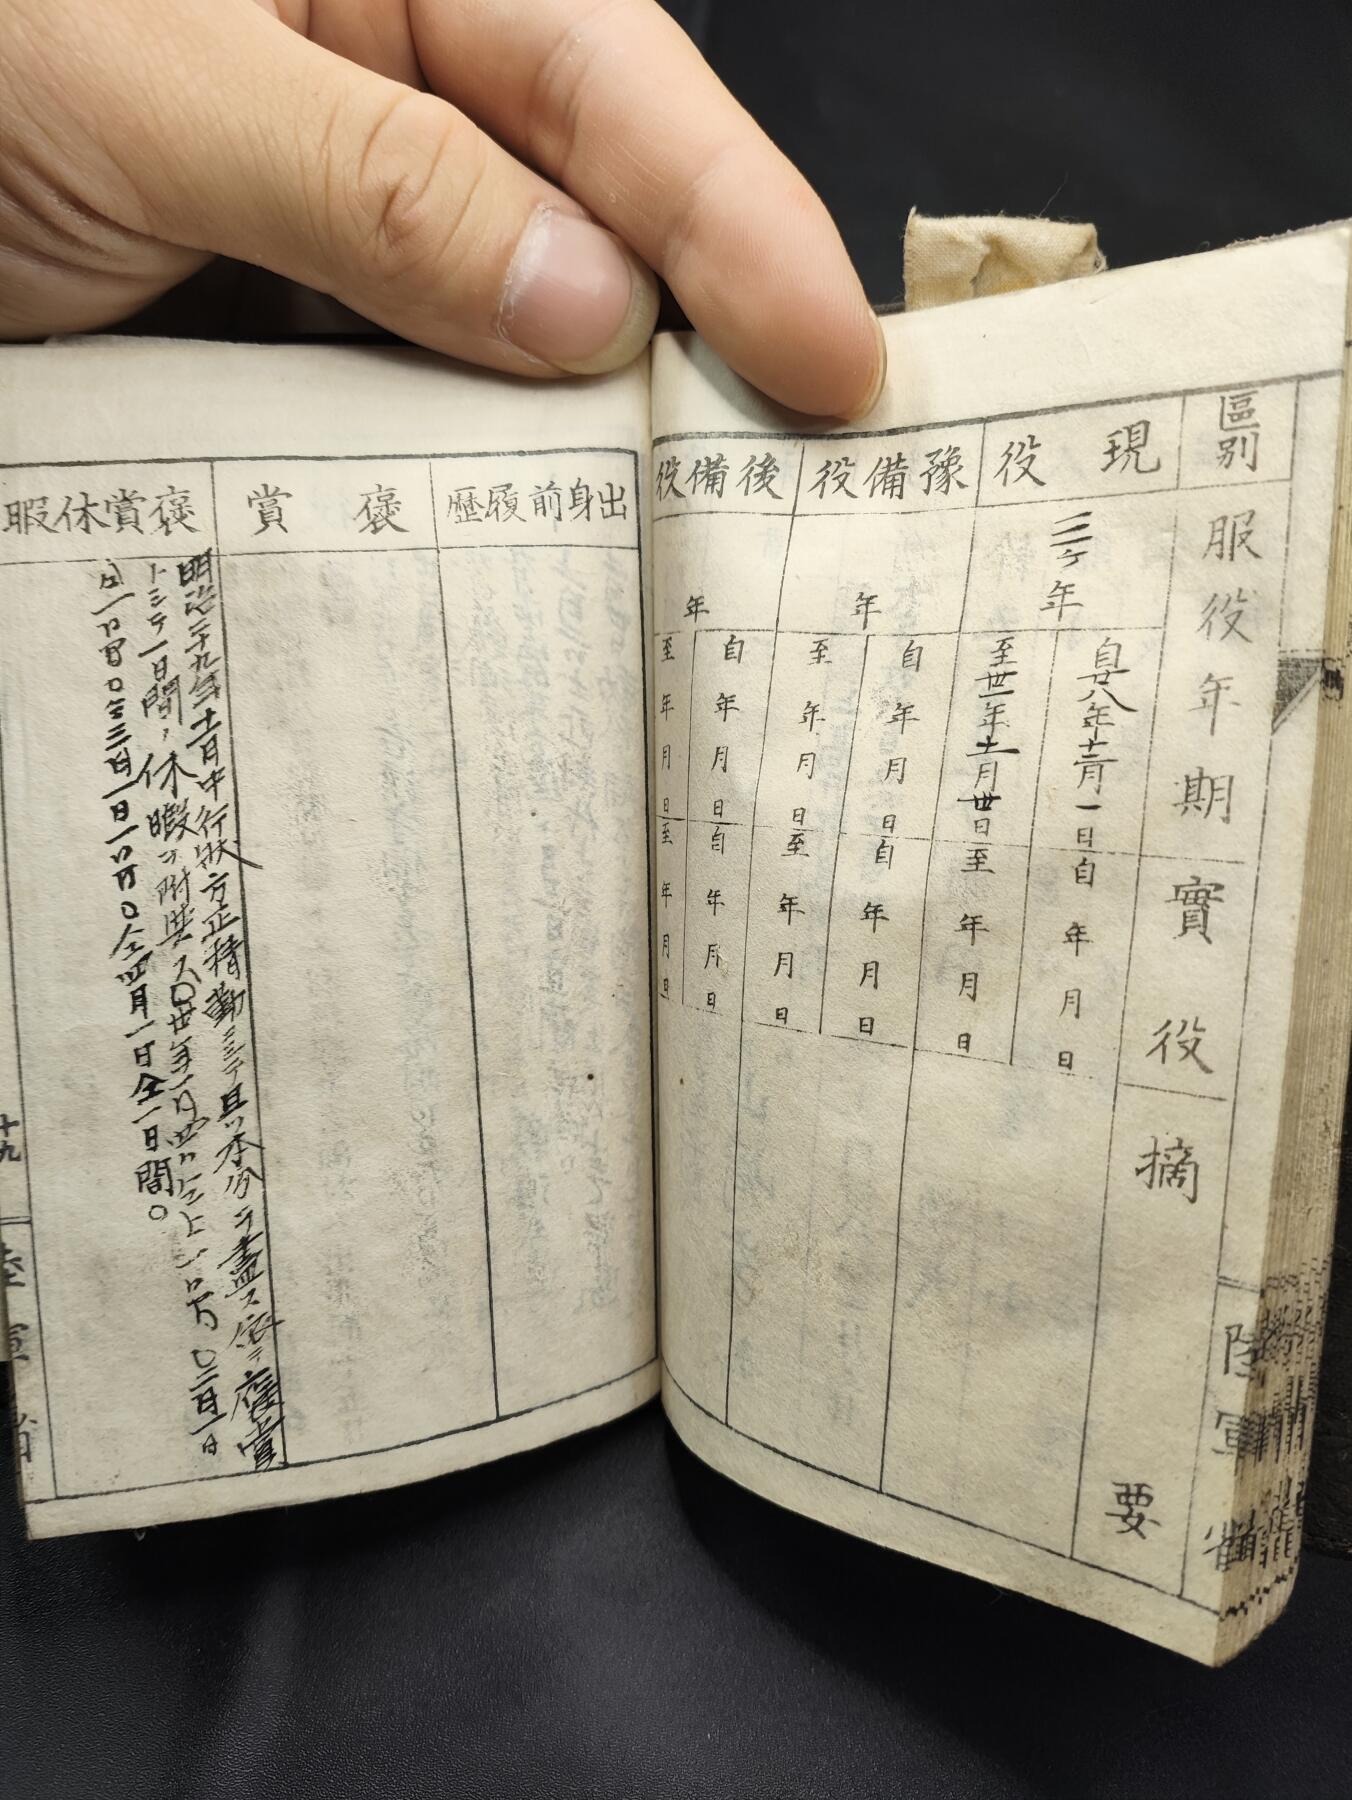 區別
服役年期
實役
摘要
現役
三ケ年
自廿八年十二月一日
至丗一年十一月丗日
自 年 月 日
至 年 月 日
豫備役
年
自 年 月 日
至 年 月 日
自 年 月 日
至 年 月 日
後備役
年
自 年 月 日
至 年 月 日
自 年 月 日
至 年 月 日
陸軍省
出身前履歷
褒賞
褒賞休暇
明治二十九年十一月中行狀方正精勤ニシテ其本分ヲ盡ス依テ褒賞
トシテ一日間ノ休暇ヲ附與ス〇丗年一月
〇二月一日
仝一日間〇三月一日
〇仝四月一日仝一日間〇
十九
陸軍省